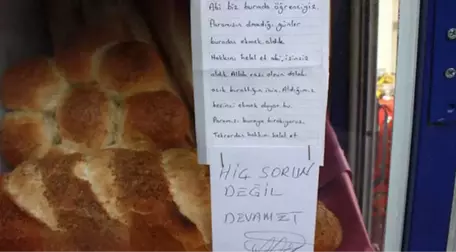 Abi biz burada öğrenciyiz.
Paramızın olmadığı günler
buradan ekmek aldık
Hakkını helal et abi, izinsiz
aldık. Allah razı olsun dolabı
açık bıraktığın için. Aldığımız
beşinci ekmek oluyor bu.
Paranızı buraya bırakıyoruz.
Tekrardan hakkını helal et.
HİÇ SORUN
DEĞİL
DEVAMET